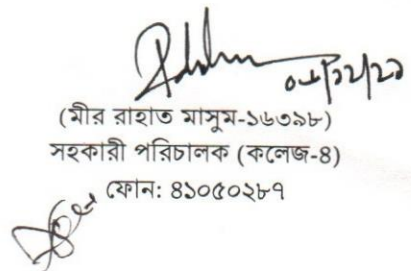 ০৮/১২/২১
(মীর রাহাত মাসুম-১৬৩৯৮)
সহকারী পরিচালক (কলেজ-৪)
ফোন: ৪১০৫০২৮৭